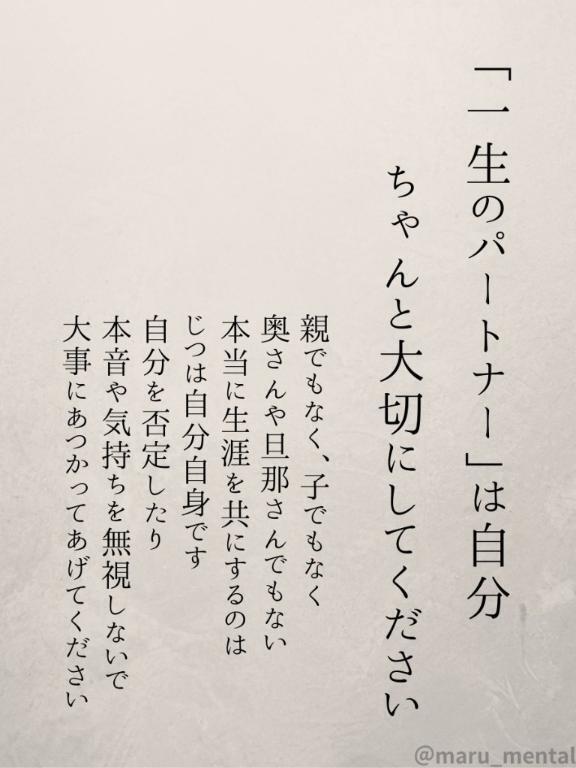 「一生のパートナー」は自分
ちゃんと大切にしてください
親でもなく、子でもなく
奥さんや旦那さんでもない
本当に生涯を共にするのは
じつは自分自身です
自分を否定したり
本音や気持ちを無視しないで
大事にあつかってあげてください
@maru_mental